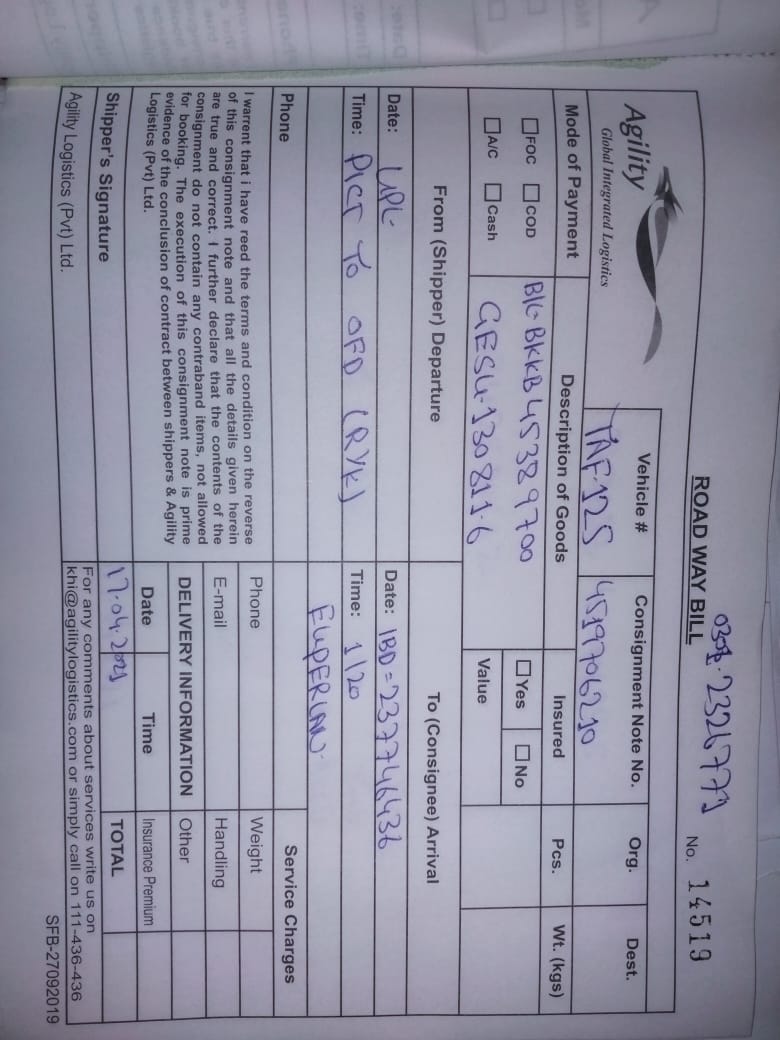 0301-2326771
ROAD WAY BILL
No. 14519
Agility
Global Integrated Logistics
Vehicle #
Consignment Note No.
Org.
Dest.
TAF-125
4519706210
Mode of Payment
Description of Goods
Insured
Pcs.
Wt. (kgs)
FOC COD
B/L-BKKB45389700
Yes No
A/C Cash
GESU-130811-6
Value
From (Shipper) Departure
To (Consignee) Arrival
Date: UPL
Date: IBD=237746436
Time: PICT To OFD (RYK)
Time: 1/20
Phone
Service Charges
I warrent that i have reed the terms and condition on the reverse
of this consignment note and that all the details given herein
are true and correct. I further declare that the contents of the
consignment do not contain any contraband items, not allowed
for booking. The execution of this consignment note is prime
evidence of the conclusion of contract between shippers & Agility
Logistics (Pvt) Ltd.
Phone
Weight
E-mail
Handling
DELIVERY INFORMATION
Other
Date
Time
Insurance Premium
Shipper's Signature
17-04-2021
TOTAL
Agility Logistics (Pvt) Ltd.
For any comments about services write us on
khi@agilitylogistics.com or simply call on 111-436-436
SFB-27092019